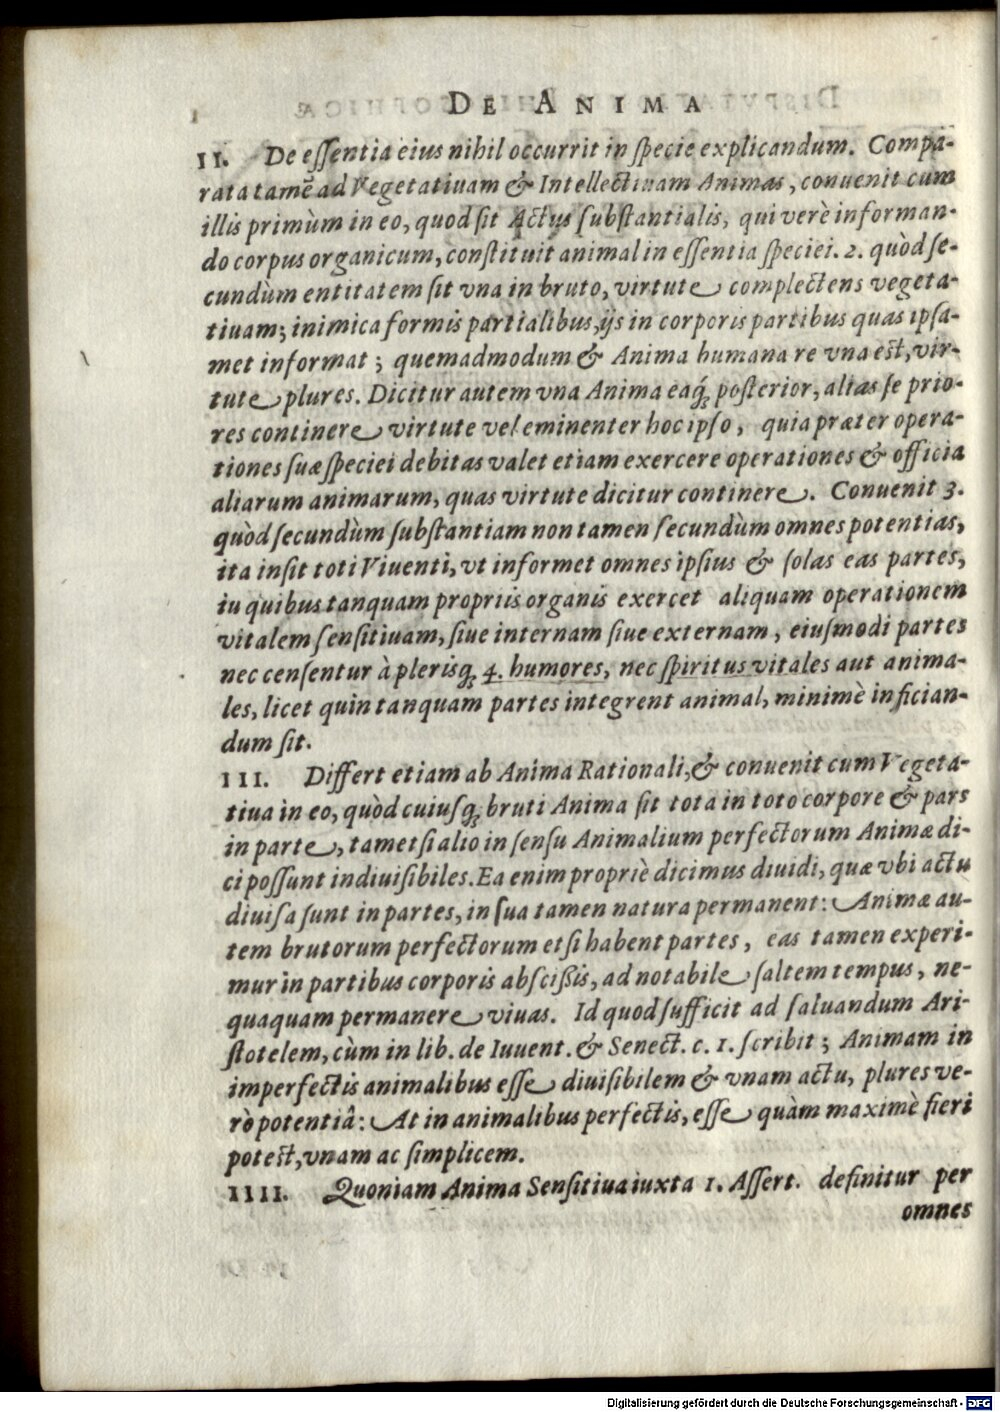 DE ANIMA
II. De eſſentia eius nihil occurrit in ſpecie explicandum. Compa-
rata tamē ad Vegetatiuam & Intellectiuam Animas, conuenit cum
illis primùm in eo, quod ſit Actus ſubſtantialis, qui verè informan-
do corpus organicum, conſtituit animal in eſſentia ſpeciei. 2. quòd ſe-
cundùm entitatem ſit vna in bruto, virtute complectens vegeta-
tiuam; inimica formis partialibus, ijs in corporis partibus quas ipſa-
met informat; quemadmodum & Anima humana re vna eſt, vir-
tute plures. Dicitur autem vna Anima eaq́; poſterior, alias ſe prio-
res continere virtute vel eminenter hoc ipſo, quia præter opera-
tiones ſuæ ſpeciei debitas valet etiam exercere operationes & officia
aliarum animarum, quas virtute dicitur continere. Conuenit 3.
quòd ſecundùm ſubſtantiam non tamen ſecundùm omnes potentias,
ita inſit toti Viuenti, vt informet omnes ipſius & ſolas eas partes,
in quibus tanquam propriis organis exercet aliquam operationem
vitalem ſenſitiuam, ſiue internam ſiue externam, eiuſmodi partes
nec cenſentur à plerisq; 4. humores, nec ſpiritus vitales aut anima-
les, licet quin tanquam partes integrent animal, minimè infician-
dum ſit.
III. Differt etiam ab Anima Rationali, & conuenit cum Vegeta-
tiua in eo, quòd cuiuſq; bruti Anima ſit tota in toto corpore & pars
in parte, tametſi alio in ſenſu Animalium perfectorum Animæ di-
ci poſſunt indiuiſibiles. Ea enim propriè dicimus diuidi, quæ vbi actu
diuiſa ſunt in partes, in ſua tamen natura permanent: Animæ au-
tem brutorum perfectorum etſi habent partes, eas tamen experi-
mur in partibus corporis abſcißis, ad notabile ſaltem tempus, ne-
quaquam permanere viuas. Id quod ſufficit ad ſaluandum Ari-
ſtotelem, cùm in lib. de Iuuent. & Senect. c. 1. ſcribit; Animam in
imperfectis animalibus eſſe diuiſibilem & vnam actu, plures ve-
rò potentiâ: At in animalibus perfectis, eſſe quàm maximè fieri
poteſt, vnam ac ſimplicem.
IIII. Quoniam Anima Senſitiua iuxta 1. Aſſert. definitur per
omnes
Digitalisierung gefördert durch die Deutsche Forschungsgemeinschaft - DFG